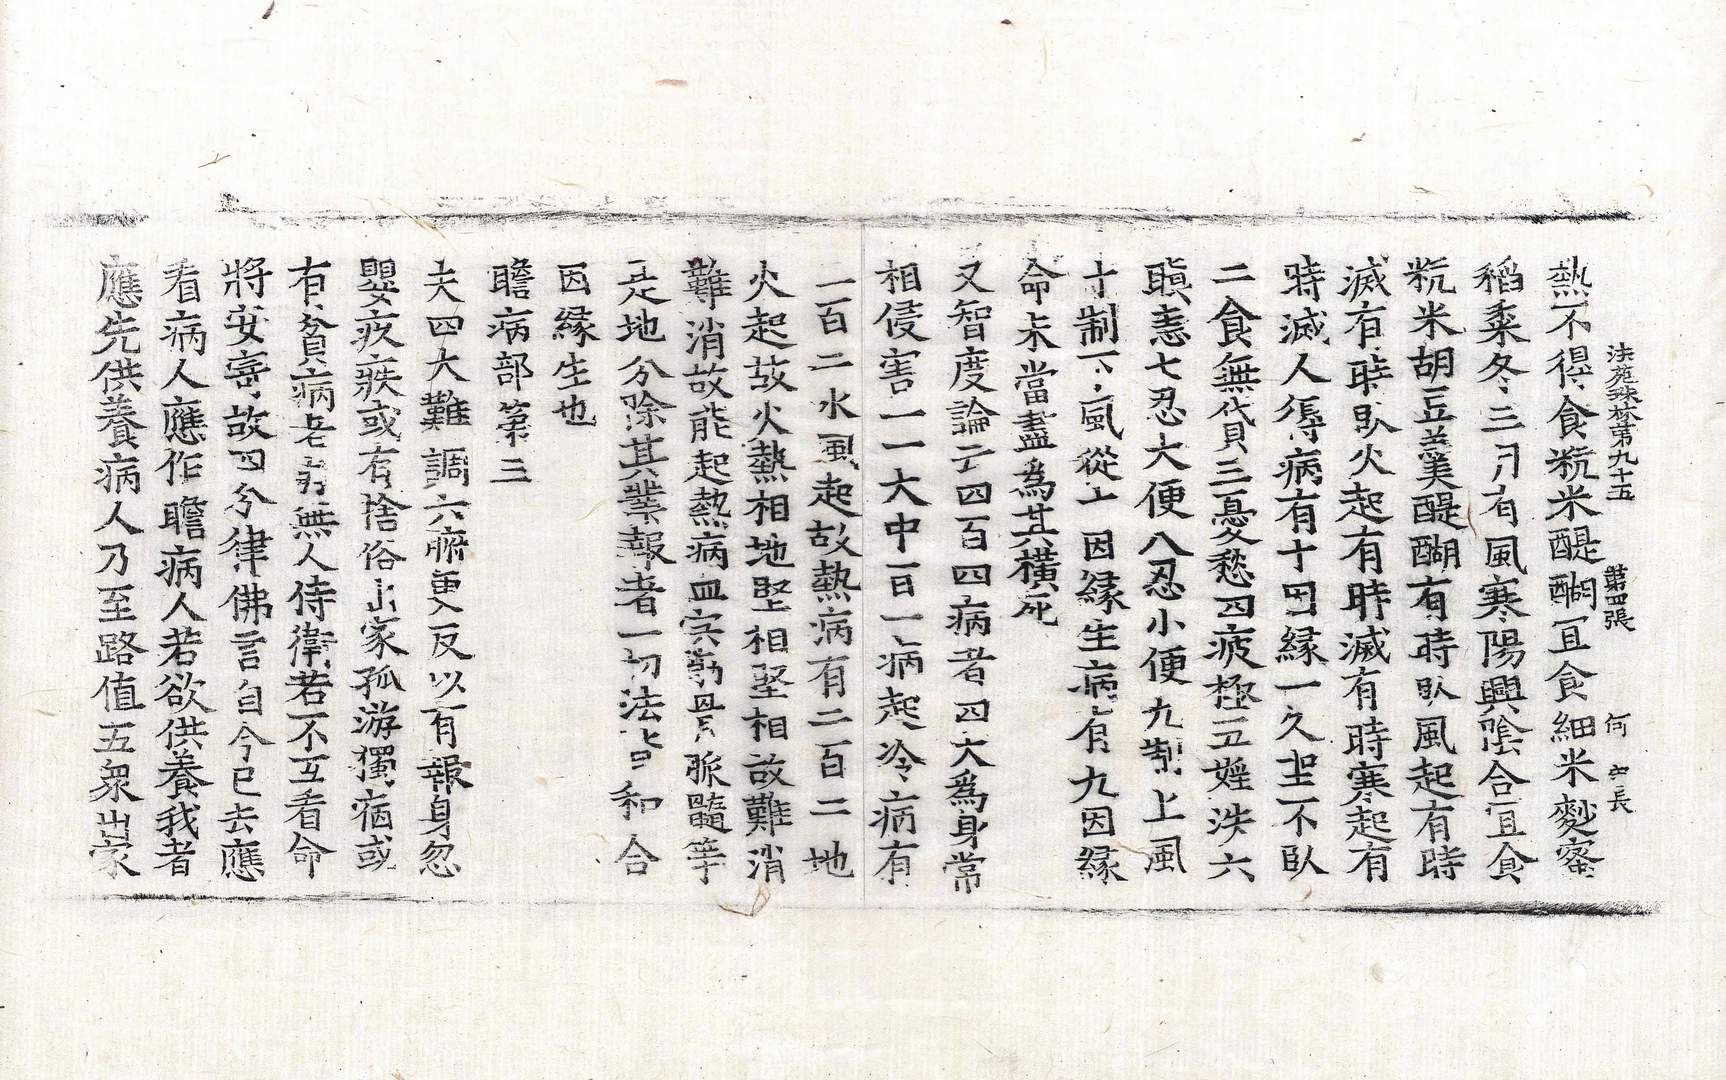 法苑珠林第九十五 第四張 何 長
熱不得食粇米醍醐冝食細米麨蜜
稻黍冬三月有風寒陽興陰合冝食
粇米胡豆羹醍醐有時臥風起有時
滅有時臥火起有時滅有時寒起有
時滅人得病有十因緣一久坐不臥
二食無貸三憂愁四疲極五婬泆六
瞋恚七忍大便八忍小便九制上風
十制下風從上因緣生病有九因緣
命未當盡爲其橫死
又智度論云四百四病者四大爲身常
相侵害一一大中百一病起冷病有
二百二水風起故熱病有二百二地
火起故火熱相地堅相堅相故難消
難消故能起熱病血肉筋骨脈髓等
是地分除其業報者一切法皆和合
因緣生也
瞻病部第三
夫四大難調六腑更反以有報身忽
嬰疾瘀或有捨俗出家孤游獨宿或
有貧病老弱無人侍衛若不互看命
將安寄故四分律佛言自今已去應
看病人應作瞻病人若欲供養我者
應先供養病人乃至路值五衆出家